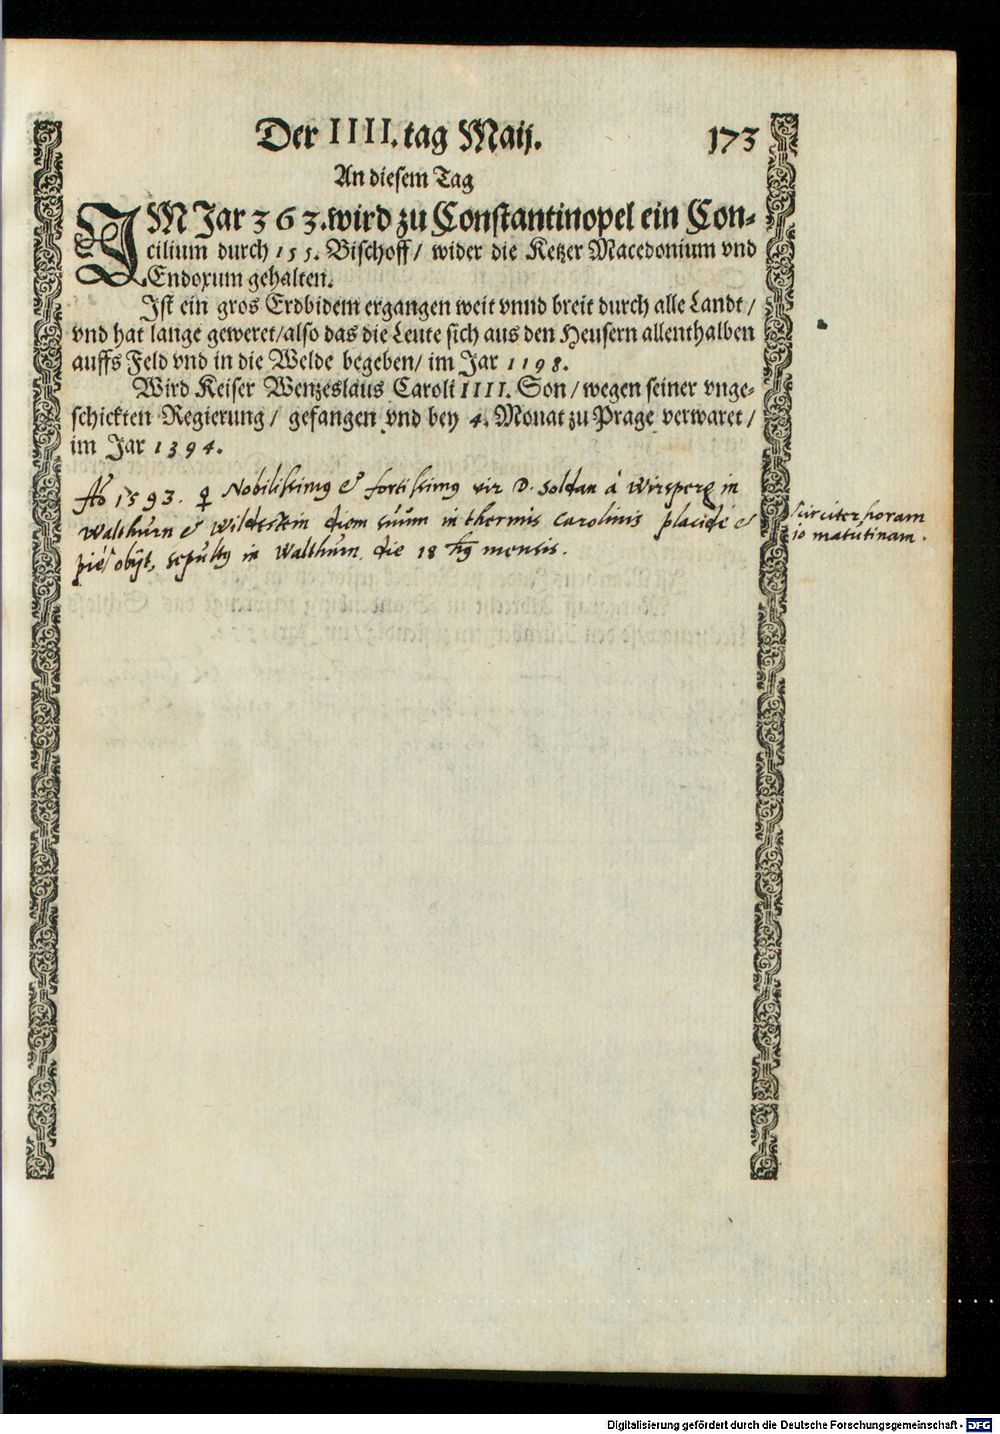 Der IIII. tag Maij. 173
An diesem Tag
IM Jar 363. wird zu Constantinopel ein Con-
cilium durch 155. Bischoff / wider die Ketzer Macedonium vnd
Endoxum gehalten.
Ist ein gros Erdbidem ergangen weit vnnd breit durch alle Landt /
vnd hat lange geweret / also das die Leute sich aus den Heusern allenthalben
auffs Feld vnd in die Welde begeben / im Jar 1198.
Wird Keiser Wenzeslaus Caroli IIII. Son / wegen seiner vnge-
schickten Regierung / gefangen vnd bey 4. Monat zu Prage verwaret /
im Jar 1394.
Ao 1593. ♀ Nobilissimus & fortissimus vir D. Soldan à Wirsperg in
Walthurn & Wildestein diem suum in thermis Carolinis placidè &
piè obijt, sepultus in Walthurn. die 18 hus mensis.
circiter horam
10 matutinam.
Digitalisierung gefördert durch die Deutsche Forschungsgemeinschaft - DFG